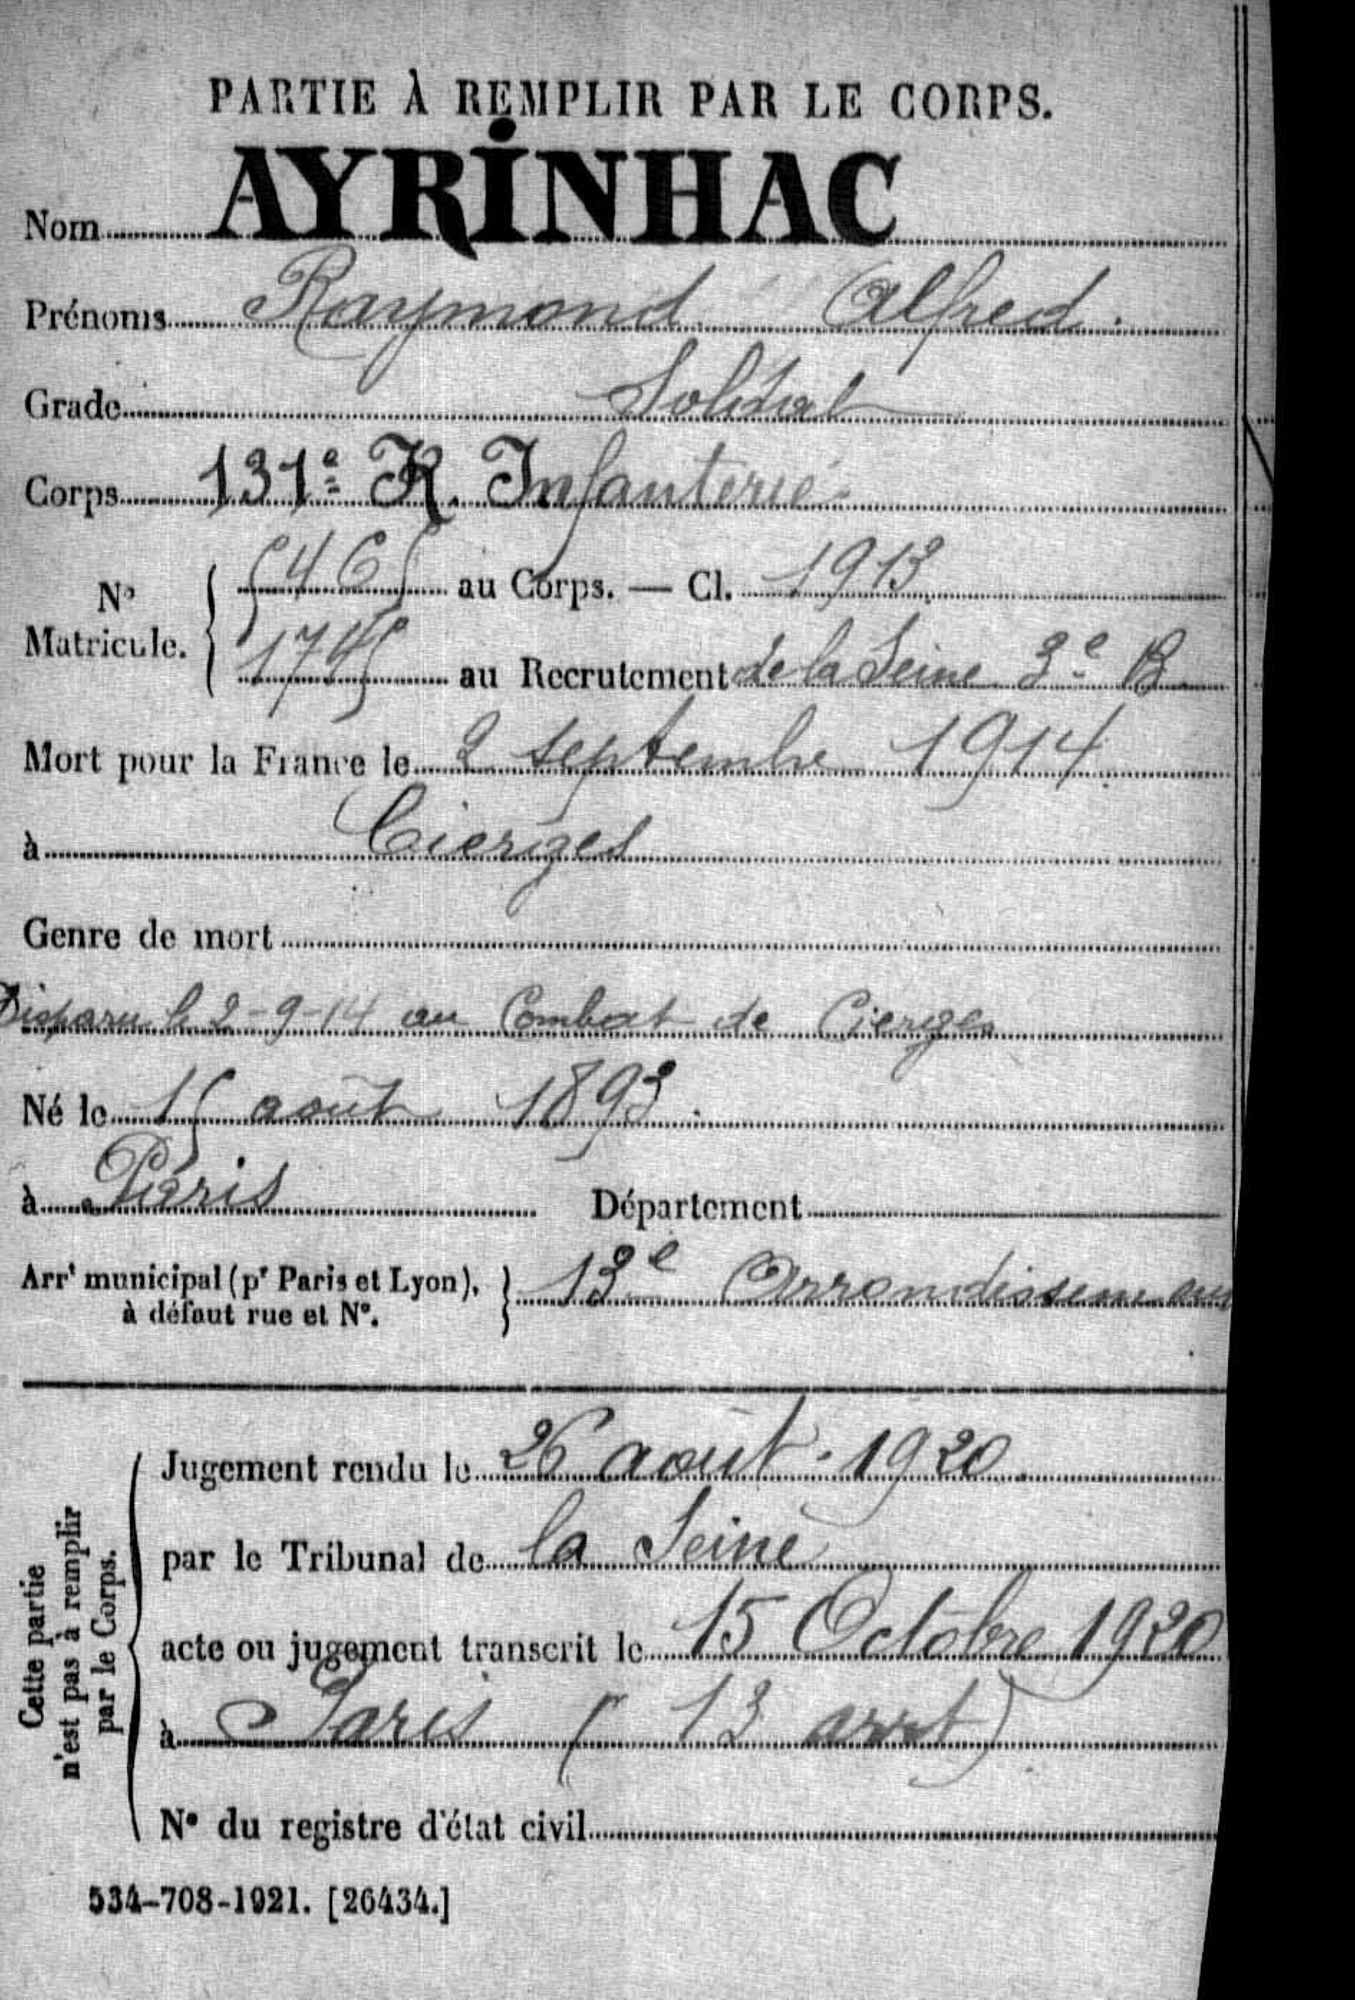 PARTIE À REMPLIR PAR LE CORPS.
Nom AYRINHAC
Prénoms Raymond Alfred.
Grade Soldat
Corps 131e R. Infanterie
N° Matricule. 5465 au Corps. — Cl. 1913
1745 au Recrutement de la Seine 3e B
Mort pour la France le 2 septembre 1914
à Cierges
Genre de mort
Disparu le 2-9-14 au Combat de Cierges
Né le 15 août 1893.
à Paris Département
Arrt municipal (pr Paris et Lyon), 13e Arrondissement
à défaut rue et N°.
Cette partie n'est pas à remplir par le Corps.
Jugement rendu le 26 août 1920
par le Tribunal de la Seine
acte ou jugement transcrit le 15 Octobre 1920
à Paris (13 arrt)
N° du registre d'état civil
534-708-1921. [26434.]